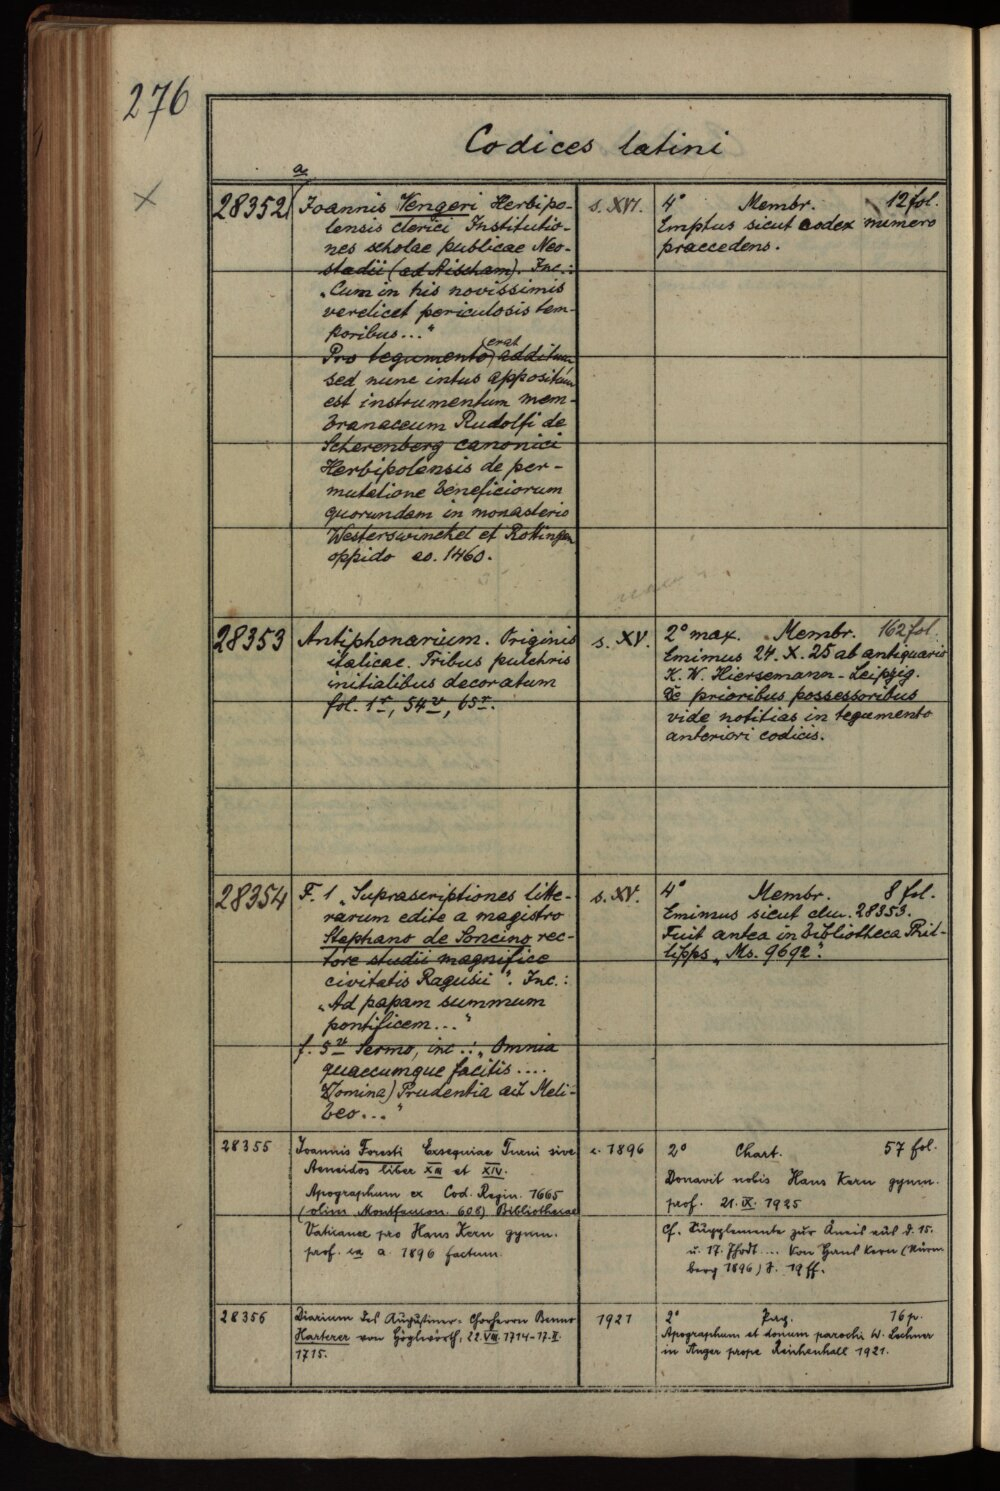 276
Codices latini
a
28352 Joannis Vengeri Herbipo-
lensis clerici Institutio-
nes scholae publicae Neo-
stadii (ad Aischam). Inc.:
„Cum in his novissimis
verelicet periculosis tem-
poribus..."
erat
Pro tegumento additum
sed nunc intus appositum
est instrumentum mem-
branaceum Rudolfi de
Scherenberg canonici
Herbipolensis de per-
mutatione beneficiorum
quorundam in monasterio
Westerswinckel et Rottingen
oppido ao. 1460.
s. XVI.
4° Membr. 12 fol.
Emptus sicut codex numero
praecedens.
28353 Antiphonarium. Originis
italicae. Tribus pulchris
initialibus decoratum
fol. 1r, 54v, 65r.
s. XV.
2° max. Membr. 162 fol.
Emimus 24. X. 25 ab antiquario
K. W. Hiersemann - Leipzig.
De prioribus possessoribus
vide notitias in tegumento
anteriori codicis.
28354 F. 1 „Suprascriptiones litte-
rarum edite a magistro
Stephano de Soncino rec-
tore studii magnifice
civitatis Ragusii". Inc.:
„Ad papam summum
pontificem..."
f. 5v Sermo, inc.: „Omnia
quaecumque facitis....
(Domina) Prudentia ait Meli-
beo..."
s. XV.
4° Membr. 8 fol.
Emimus sicut clm. 28353.
Fuit antea in bibliotheca Phil-
lipps „Ms. 9692".
28355 Joannis Foresti Exsequiae Turni sive
Aeneidos liber XIII et XIV.
Apographum ex Cod. Regin. 1665
(olim Montfaucon. 608) Bibliothecae
Vaticanae pro Hans Kern gymn.
prof. ca a. 1896 factum
c. 1896
2° Chart. 57 fol.
Donavit nobis Hans Kern gymn.
prof. 21. IX. 1925
Cf. Supplemente zur Äneis aus d. 15.
u. 17. Jhdt.... von Hans Kern (Nürn-
berg 1896) S. 19 ff.
28356 Diarium des Augustiner-Chorherrn Benno
Harterer von Höglwörth, 22. VIII. 1714-17. II.
1715.
1921
2° Pag. 16 p.
Apographum et donum parochi W. Lechner
in Anger prope Reichenhall 1921.